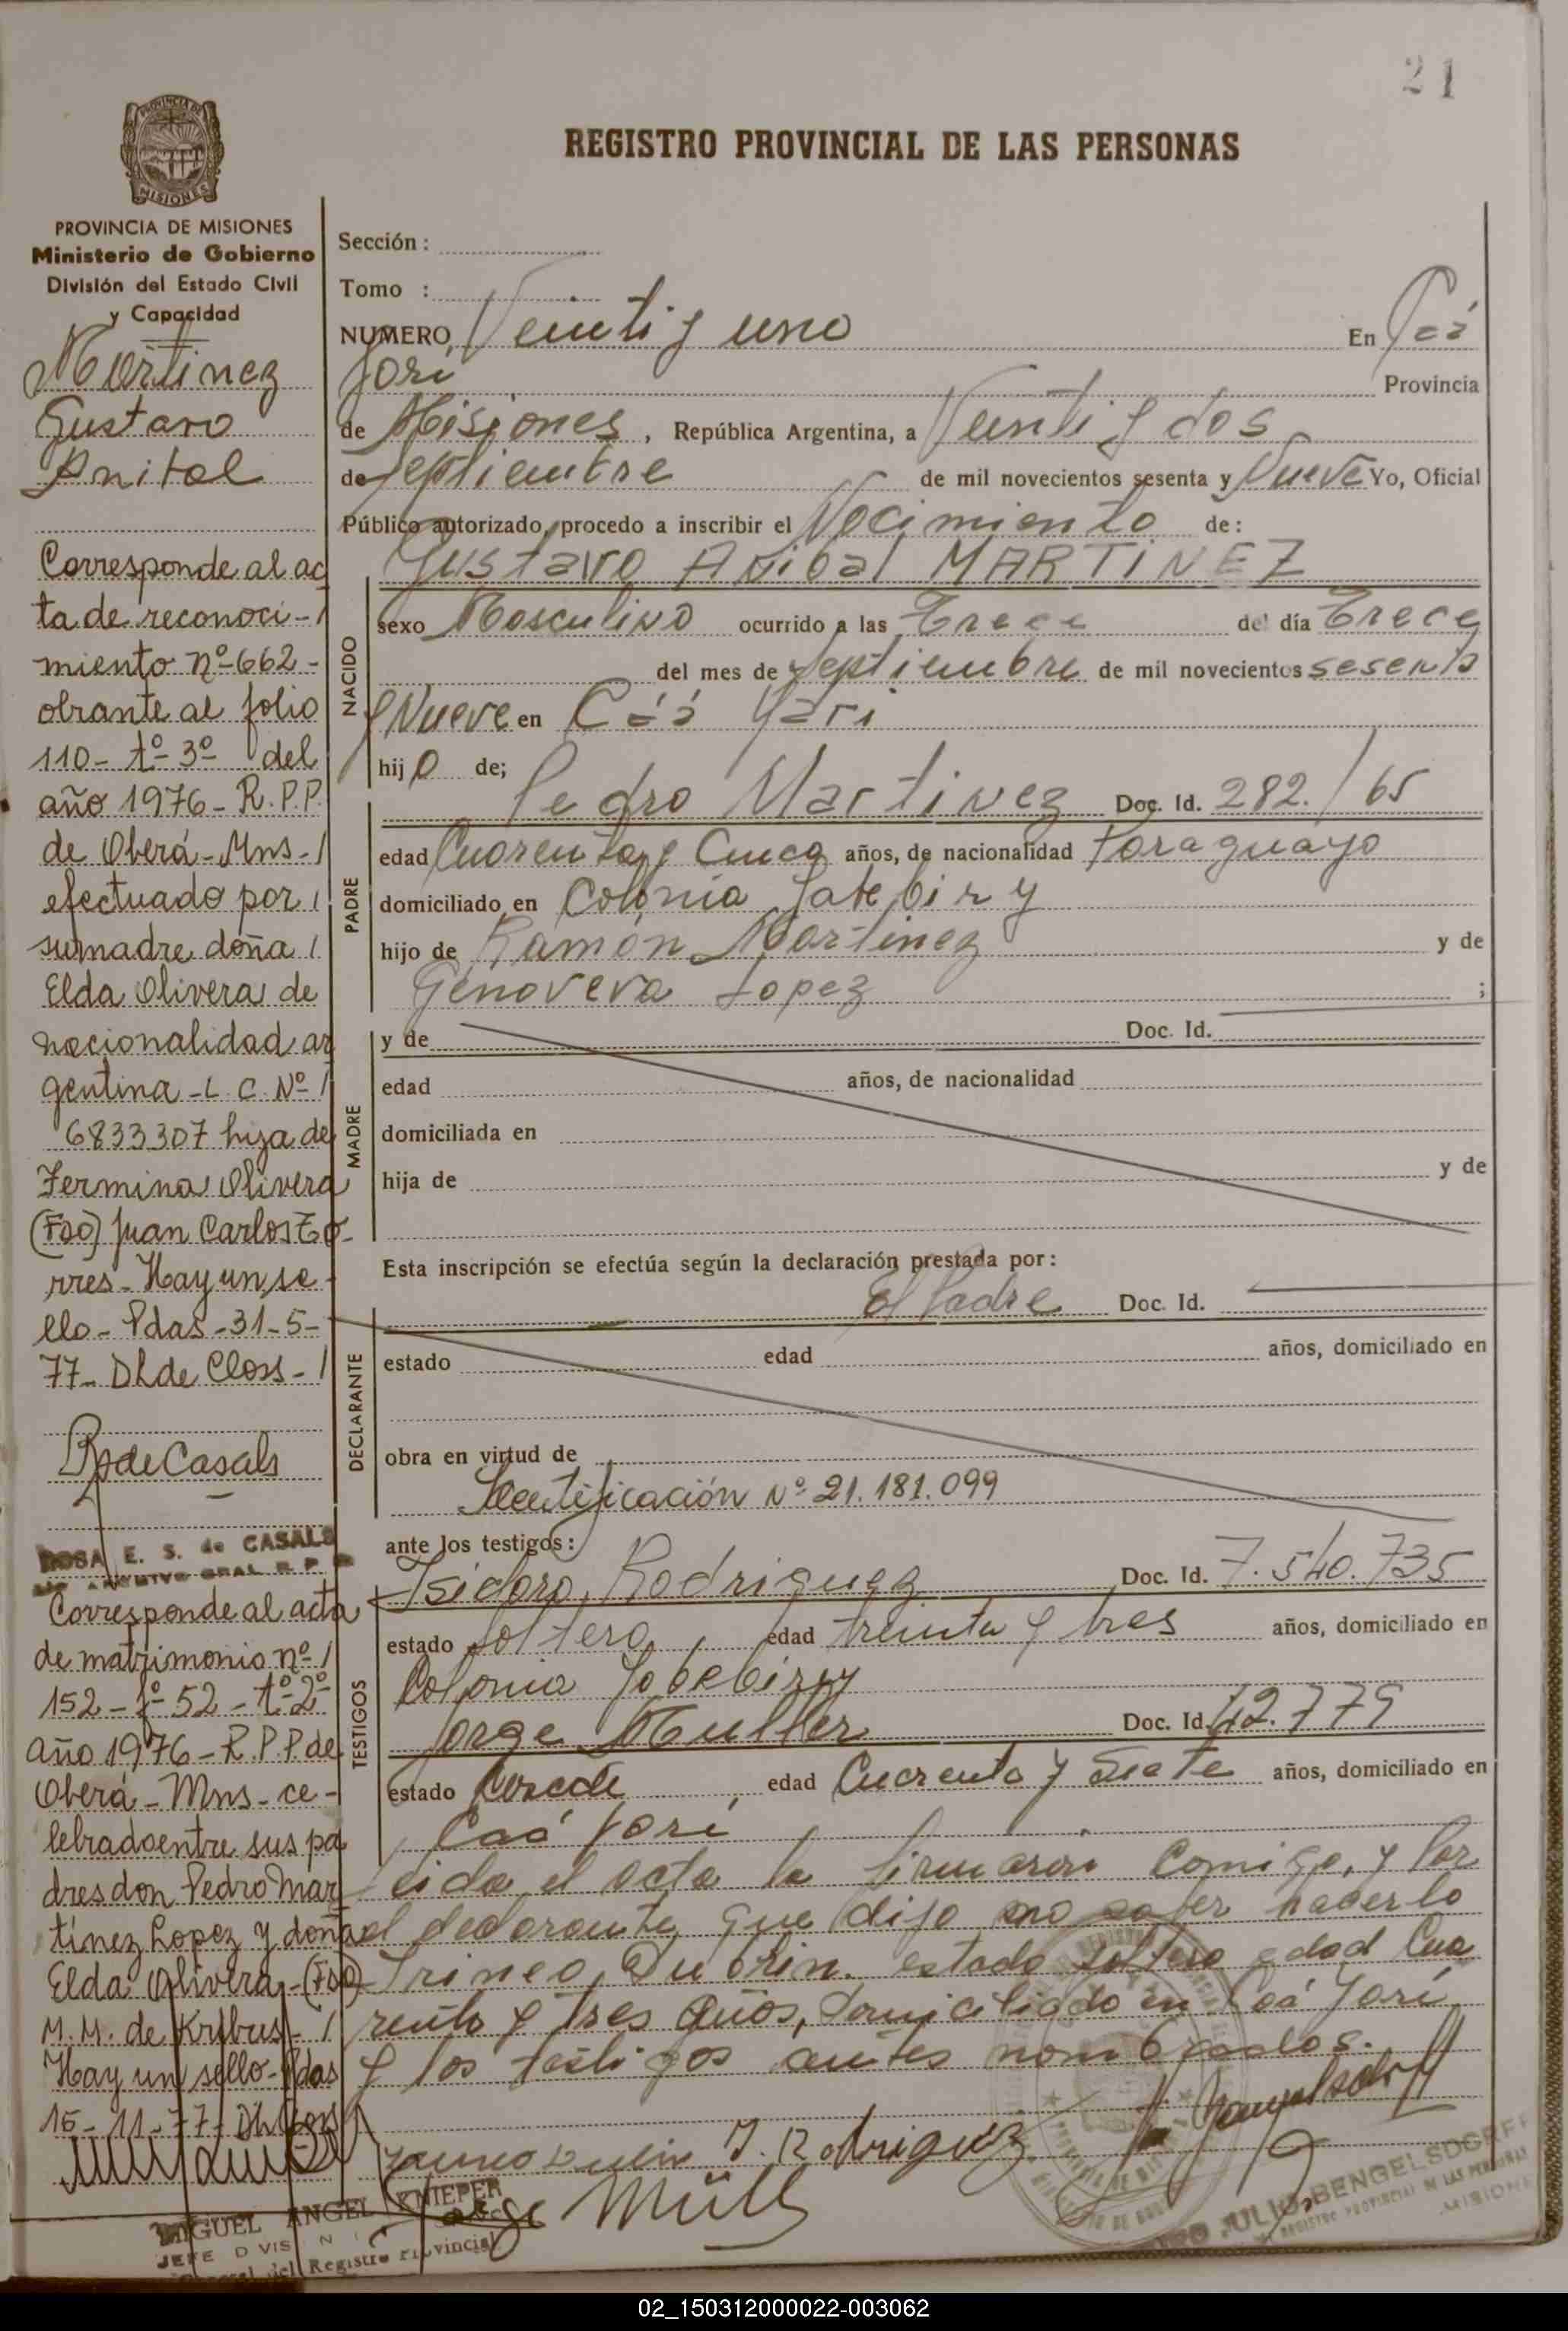 21
REGISTRO PROVINCIAL DE LAS PERSONAS
MISIONES
PROVINCIA DE MISIONES
Ministerio de Gobierno
División del Estado Civil
y Capacidad
Martinez
Gustavo
Anibal
Corresponde al ac
ta de reconoci-/
miento nº 662-
obrante al folio
110- tº 3º del
año 1976- R.P.P.
de Oberá-Mns-/
efectuado por /
su madre doña /
Elda Olivera de
nacionalidad ar
gentina - L. C. Nº /
6833307 hija de
Fermina Olivera
(Fdo) Juan Carlos To-
rres- Hay un se-
llo- Pdas-31-5-
77- Dh de Closs-/
R de Casals
ROSA E. S. de CASALS
GRAL R. P.
Corresponde al acta
de matrimonio nº /
152-fº 52-tº 2º
año 1976-R.P.P de
Oberá-Mns-ce-
lebrado entre sus pa
dres don Pedro Mar
tínez Lopez y doña
Elda Olivera-(Fdo)
M. M. de Kribus-/
Hay un sello-Pdas
15-11-77-Dh Closs
MIGUEL ANGEL KNIEPER
JEFE DIVISI N
del Registro Provincial
Sección:
Tomo :
NUMERO Veinti y uno En Caá
Yari Provincia
de Misiones, República Argentina, a Veinti y dos
de septiembre de mil novecientos sesenta y Nueve Yo, Oficial
Público autorizado, procedo a inscribir el Nacimiento de:
Gustavo Anibal MARTINEZ
NACIDO
sexo Masculino ocurrido a las Trece del día Trece
del mes de septiembre de mil novecientos sesenta
y Nueve en Caá Yari
hijo de;
PADRE
Pedro Martinez Doc. Id. 282./65
edad Cuarenta y Cinco años, de nacionalidad Paraguayo
domiciliado en Colonia Yabebiry
hijo de Ramón Martinez y de
Genoveva Lopez ;
MADRE
y de Doc. Id.
edad años, de nacionalidad
domiciliada en
hija de y de
Esta inscripción se efectúa según la declaración prestada por:
El Padre Doc. Id.
DECLARANTE
estado edad años, domiciliado en
obra en virtud de
Identificación Nº 21.181.099
ante los testigos:
TESTIGOS
Isidoro Rodriguez Doc. Id. 7.540.735
estado soltero, edad treinta y tres años, domiciliado en
Colonia Yabebiry
Jorge Muller Doc. Id. 42.779
estado Casado edad Cuarenta y Siete años, domiciliado en
Caá Yari
Leida el acta la firmaron Comigo, y Por
el declarante, que dijo no saber hacerlo
Irineo Dubrin. estado soltero edad Cua
renta y tres años, domiciliado en Caá Yari
y los testigos antes nombrados.
I. Rodriguez
Müller
JULIO BENGELSDORFF
REGISTRO PROVINCIAL DE LAS PERSONAS
MISIONES
02_150312000022-003062